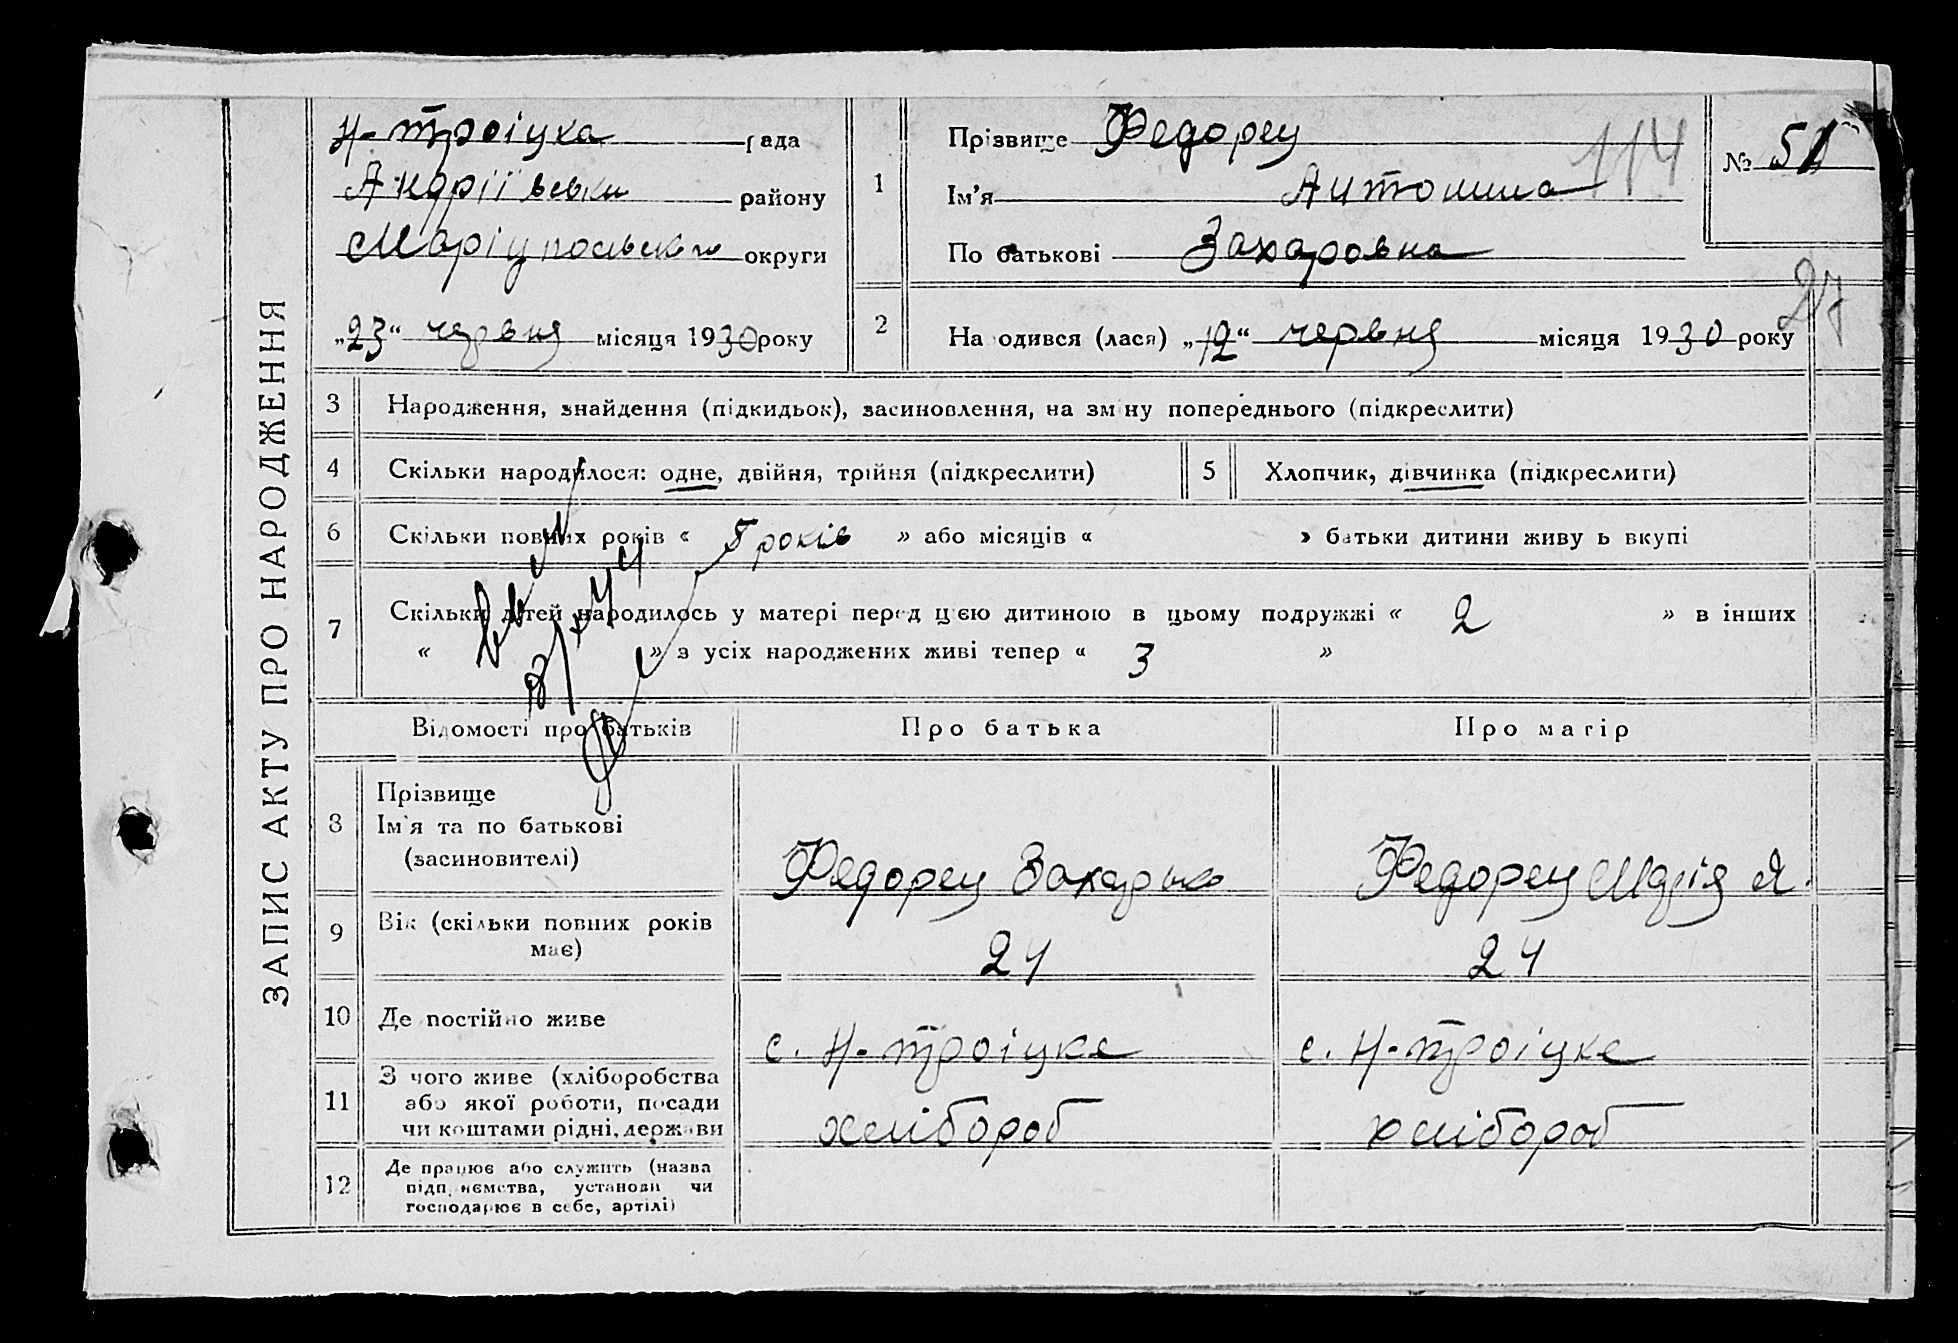 ЗАПИС АКТУ ПРО НАРОДЖЕННЯ
Н-Троіцка рада
Андріївськи району
Маріупольсько округи
„23“ червня місяця 1930 року
1
Прізвище Федорец
114
Ім'я Антонина
По батькові Захаровна
№ 51
27
2
Народився (лася) „12“ червня місяця 1930 року
3 Народження, знайдення (підкидьок), засиновлення, на зміну попереднього (підкреслити)
4 Скільки народилося: одне, двійня, трійня (підкреслити) 5 Хлопчик, дівчинка (підкреслити)
6 Скільки повних років « 5 років » або місяців « » батьки дитини живуть вкупі
7 Скільки дітей народилось у матері перед цією дитиною в цьому подружжі « 2 » в інших
« » з усіх народжених живі тепер « 3 »
Відомості про батьків Про батька Про матір
8 Прізвище
Ім'я та по батькові
(засиновителі)
Федорец Захарько Федорец Марія Я.
9 Вік (скільки повних років
має)
24 24
10 Де постійно живе с. Н-Троіцке с. Н-Троіцке
11 З чого живе (хліборобства
або якої роботи, посади
чи коштами рідні, держави
хлібороб хлібороб
12 Де працює або служить (назва
підприємства, установи чи
господарює в себе, артілі)